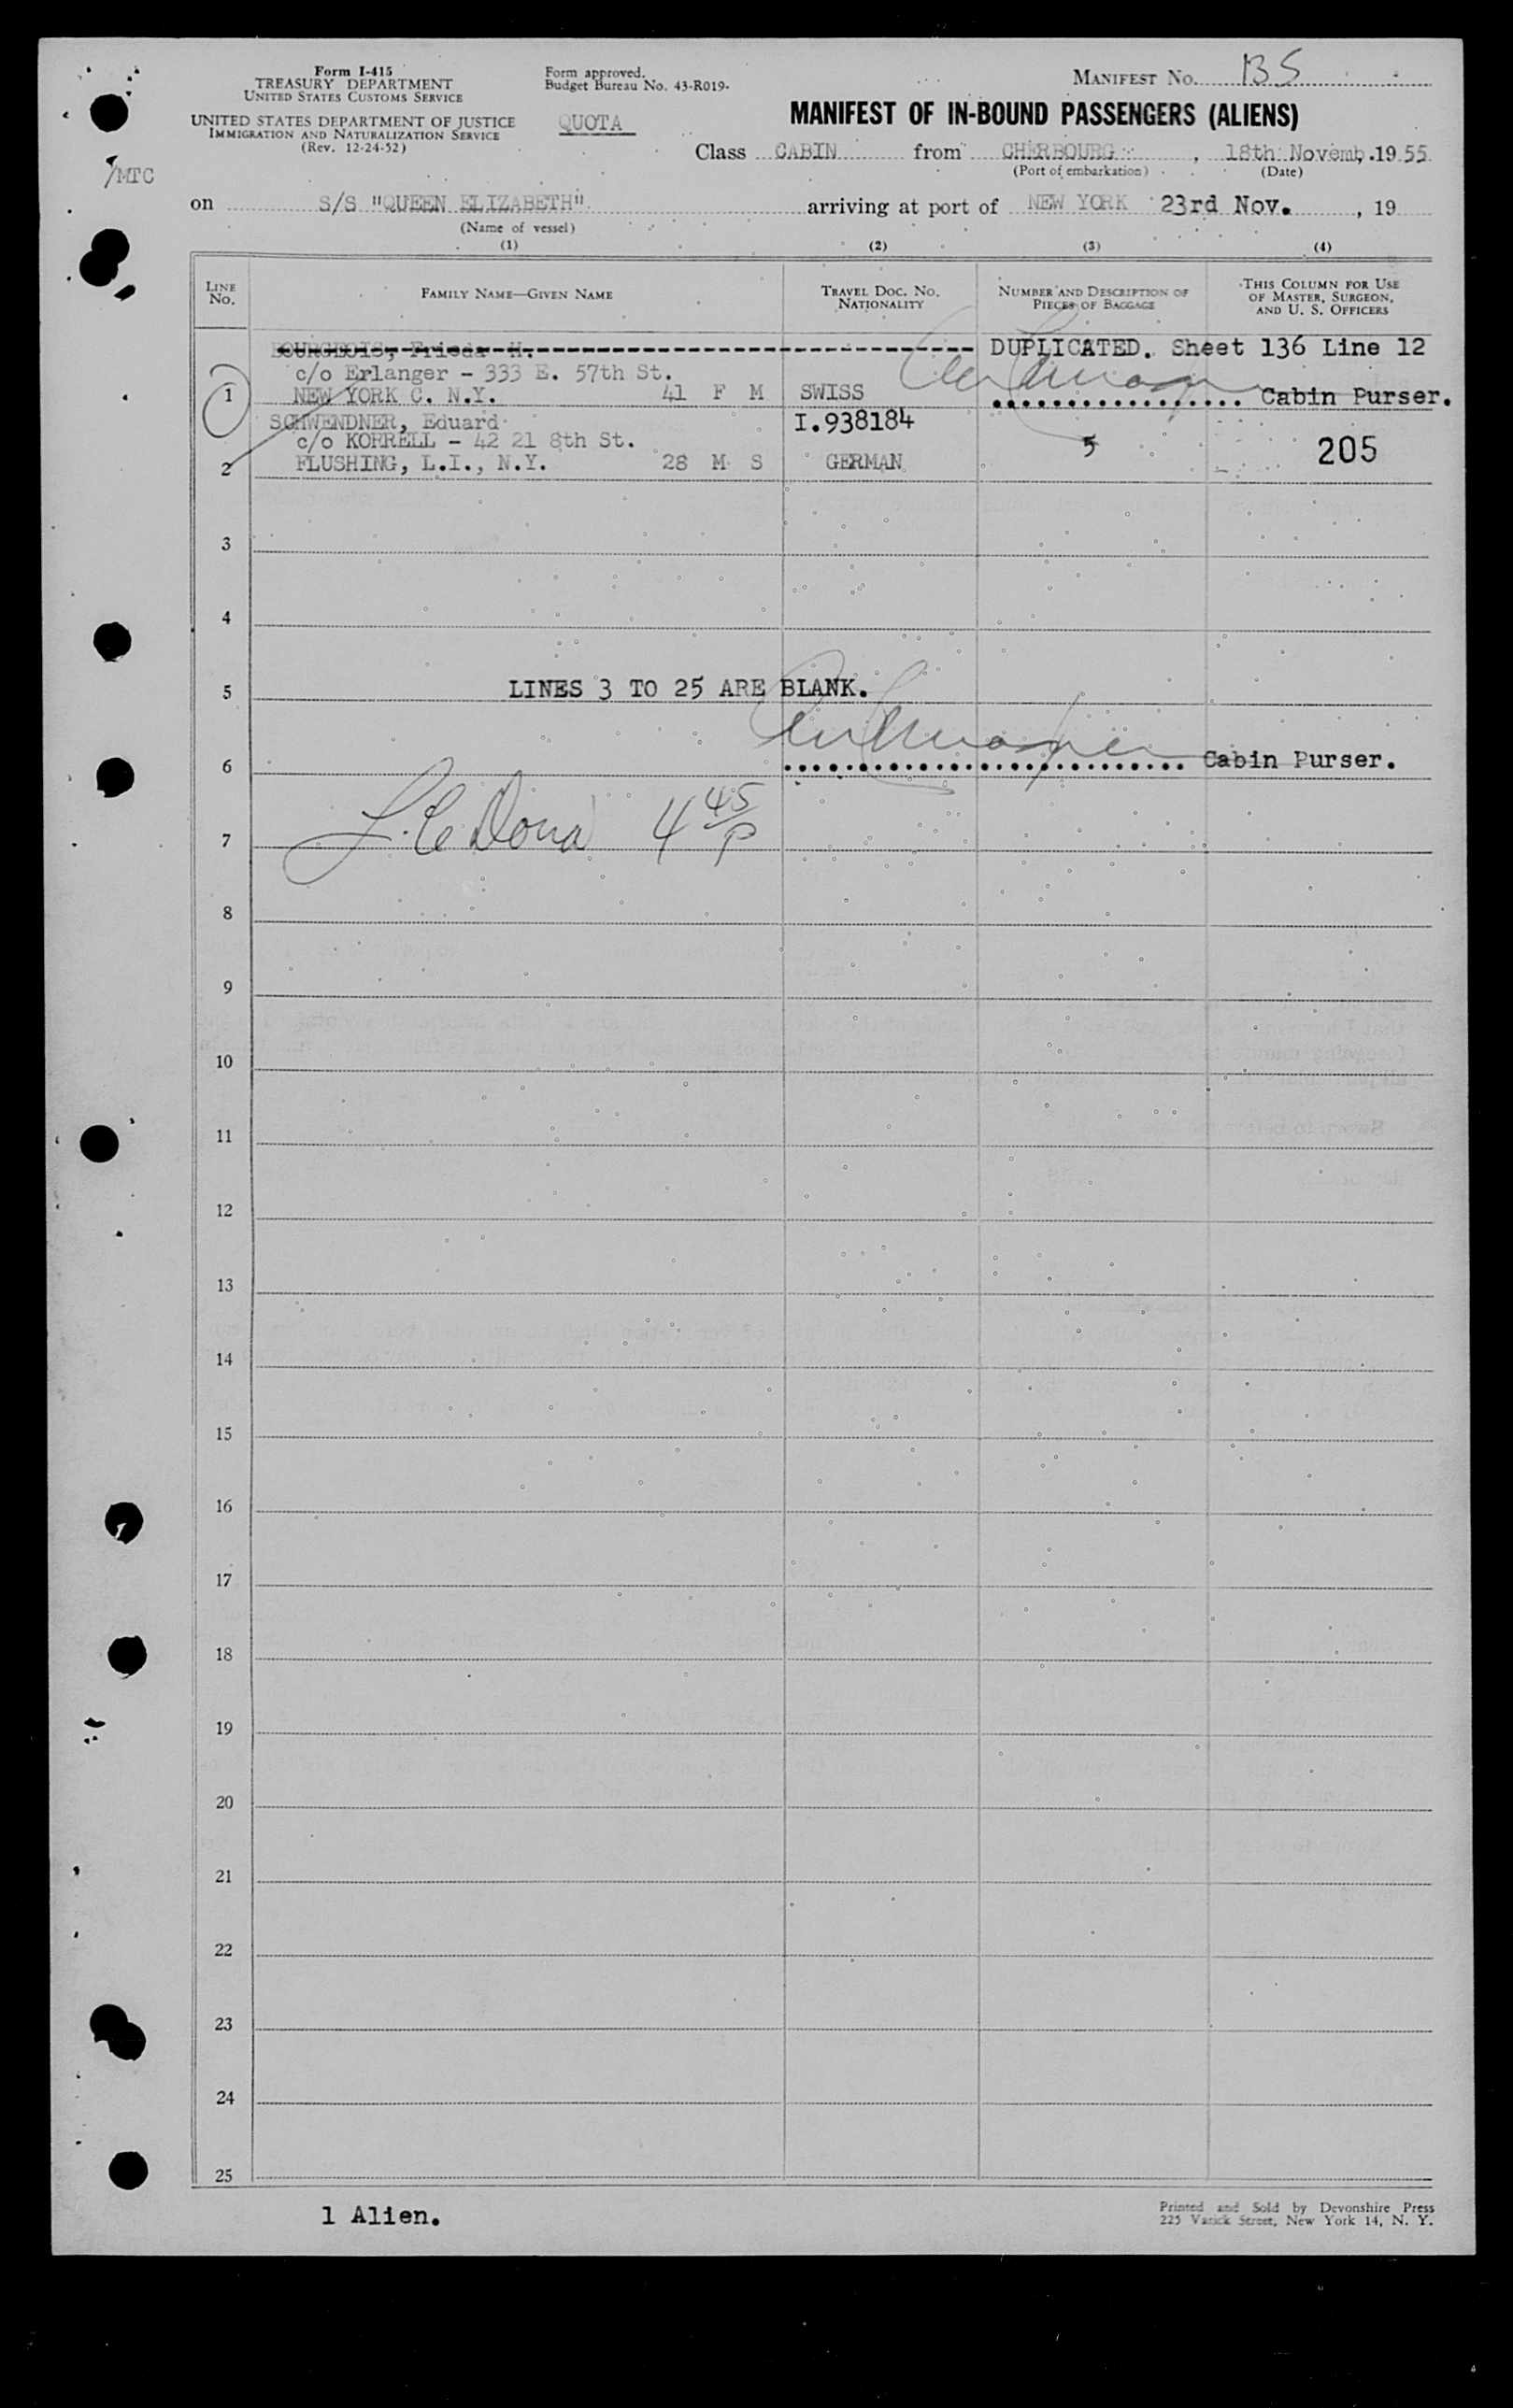 Form I-415
TREASURY DEPARTMENT
UNITED STATES CUSTOMS SERVICE
UNITED STATES DEPARTMENT OF JUSTICE
IMMIGRATION AND NATURALIZATION SERVICE
(Rev. 12-24-52)
/MTC
Form approved.
Budget Bureau No. 43-R019-
QUOTA
MANIFEST No.
MANIFEST OF IN-BOUND PASSENGERS (ALIENS)
Class CABIN from CHERBOURG, 18th Novemb, 1955
(Port of embarkation) (Date)
on S/S "QUEEN ELIZABETH" arriving at port of NEW YORK 23rd Nov., 19
(Name of vessel)
(1) (2) (3) (4)
LINE No. FAMILY NAME—GIVEN NAME TRAVEL DOC. NO. NATIONALITY NUMBER AND DESCRIPTION OF PIECES OF BAGGAGE THIS COLUMN FOR USE OF MASTER, SURGEON, AND U. S. OFFICERS
BOURGEOIS, Frieda H. DUPLICATED. Sheet 136 Line 12
c/o Erlanger - 333 E. 57th St.
1 NEW YORK C. N.Y. 41 F M SWISS Cabin Purser.
SCHWENDNER, Eduard I.938184
c/o KORRELL - 42 21 8th St. 5 205
2 FLUSHING, L.I., N.Y. 28 M S GERMAN
3
4
5 LINES 3 TO 25 ARE BLANK.
6 Cabin Purser.
7 4 45/P
8
9
10
11
12
13
14
15
16
17
18
19
20
21
22
23
24
25
1 Alien.
Printed and Sold by Devonshire Press
225 Varick Street, New York 14, N. Y.